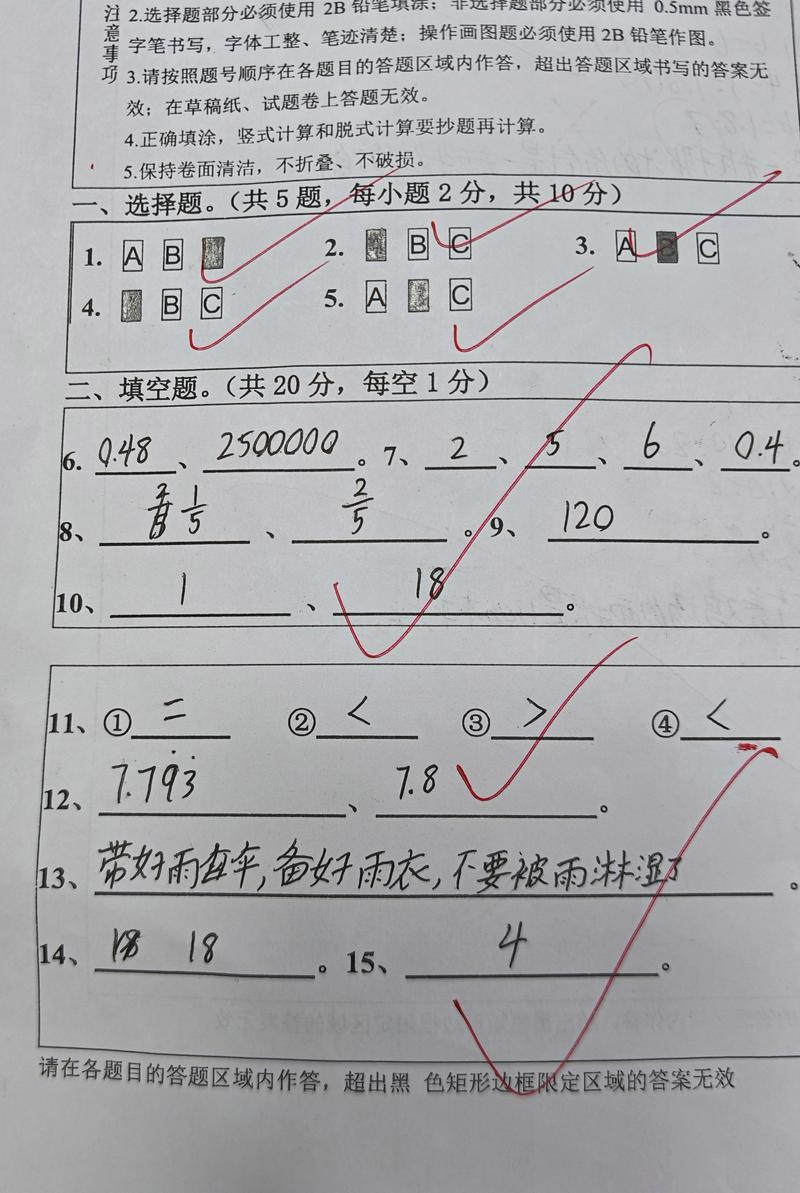 注意事项
2.选择题部分必须使用 2B 铅笔填涂；非选择题部分必须使用 0.5mm 黑色签
字笔书写，字体工整、笔迹清楚；操作画图题必须使用 2B 铅笔作图。
3.请按照题号顺序在各题目的答题区域内作答，超出答题区域书写的答案无
效；在草稿纸、试题卷上答题无效。
4.正确填涂，竖式计算和脱式计算要抄题再计算。
5.保持卷面清洁，不折叠、不破损。
一、选择题。（共 5 题，每小题 2 分，共 10 分）
1. A B 2. B C 3. A B C
4. B C 5. A C
二、填空题。（共 20 分，每空 1 分）
6. 0.48 、 2500000 。7、 2 、 5 、 6 、 0.4 。
8、 1/5 、 2/5 。9、 120 。
10、 1 、 18 。
11、① = ② < ③ > ④ <
12、 7.7̇93̇ 、 7.8 。
13、带好雨伞,备好雨衣,不要被雨淋湿了 。
14、 18 。15、 4 。
请在各题目的答题区域内作答，超出黑 色矩形边框限定区域的答案无效